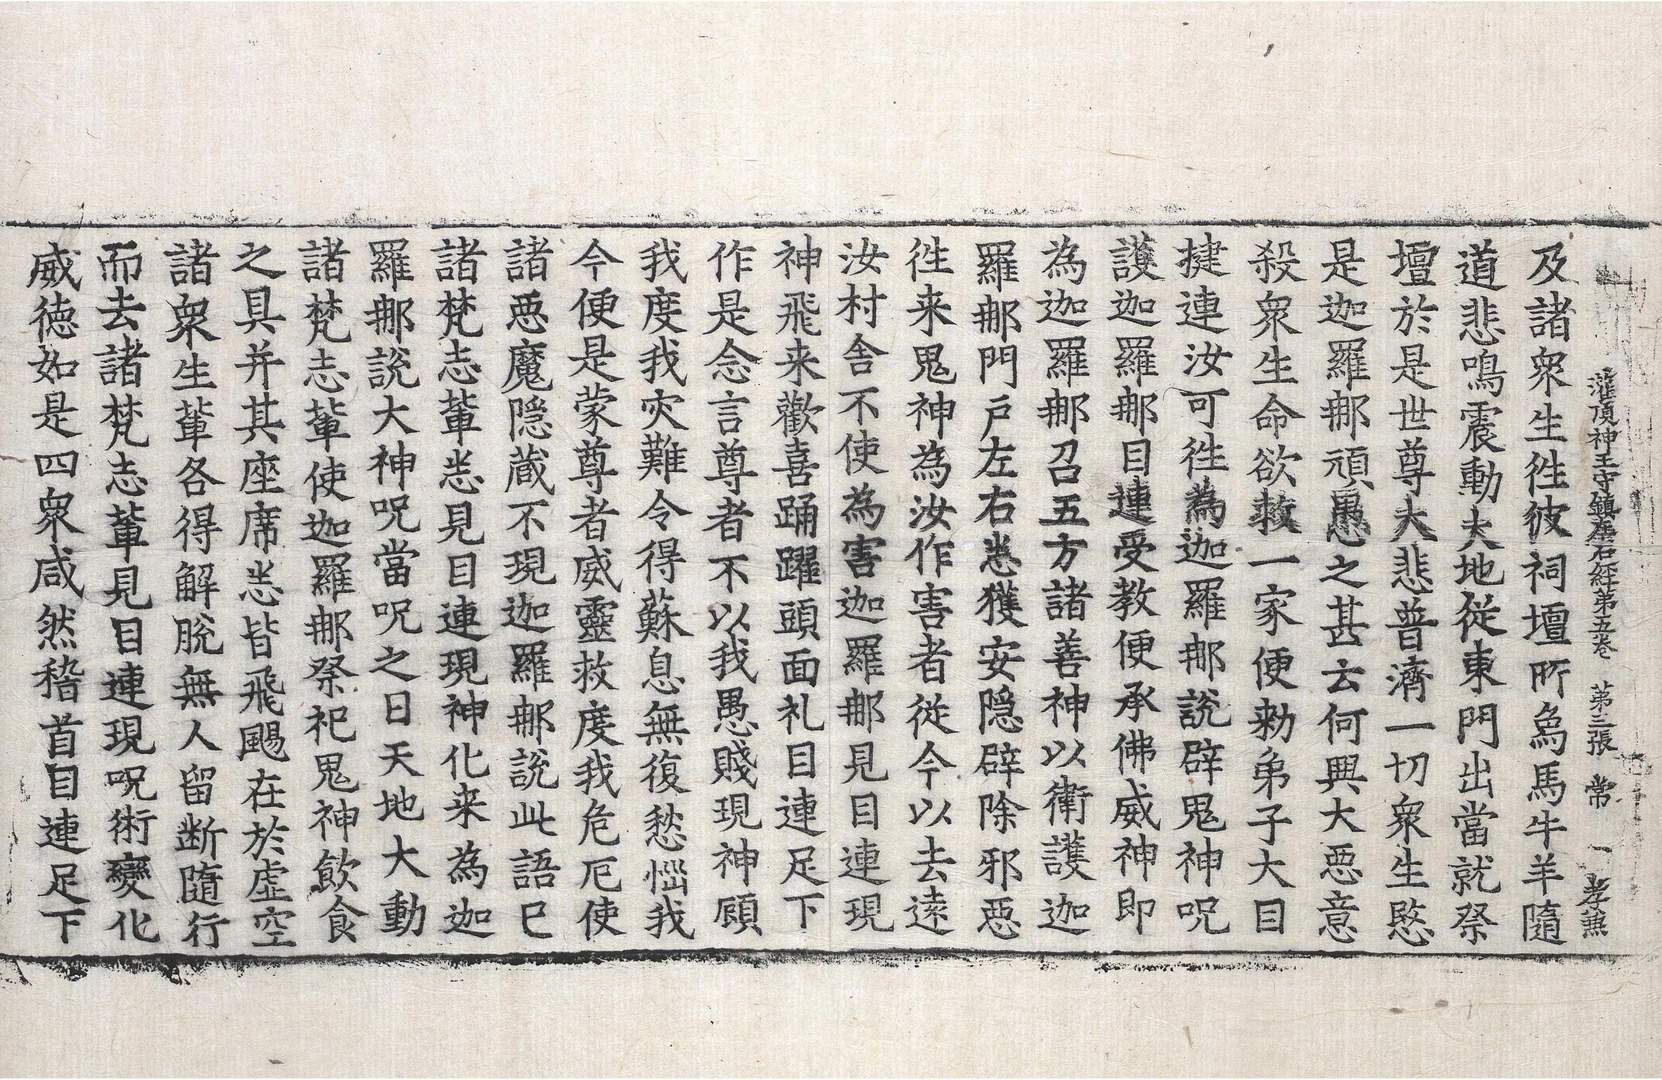 灌頂神王守鎮左右經第五卷　第三張　常　一　孝兼
及諸衆生徃彼祠壇所烏馬牛羊隨
道悲鳴震動大地從東門出當就祭
壇於是世尊大悲普濟一切衆生愍
是迦羅那頑愚之甚去何興大惡意
殺衆生命欲救一家便勑弟子大目
揵連汝可徃為迦羅那說辟鬼神呪
護迦羅那目連受教便承佛威神即
為迦羅那召五方諸善神以衛護迦
羅那門戶左右悉獲安隱辟除邪惡
徃来鬼神為汝作害者從今以去逺
汝村舍不使為害迦羅那見目連現
神飛来歡喜踊躍頭面礼目連足下
作是念言尊者不以我愚賤現神願
我度我灾難令得蘇息無復愁惱我
今便是蒙尊者威靈救度我危厄使
諸惡魔隱藏不現迦羅那說此語已
諸梵志軰悉見目連現神化来為迦
羅那說大神呪當呪之日天地大動
諸梵志軰使迦羅那祭祀鬼神飲食
之具并其座席悉皆飛颺在於虛空
諸衆生軰各得解脫無人留斷隨行
而去諸梵志軰見目連現呪術變化
威德如是四衆咸然稽首目連足下